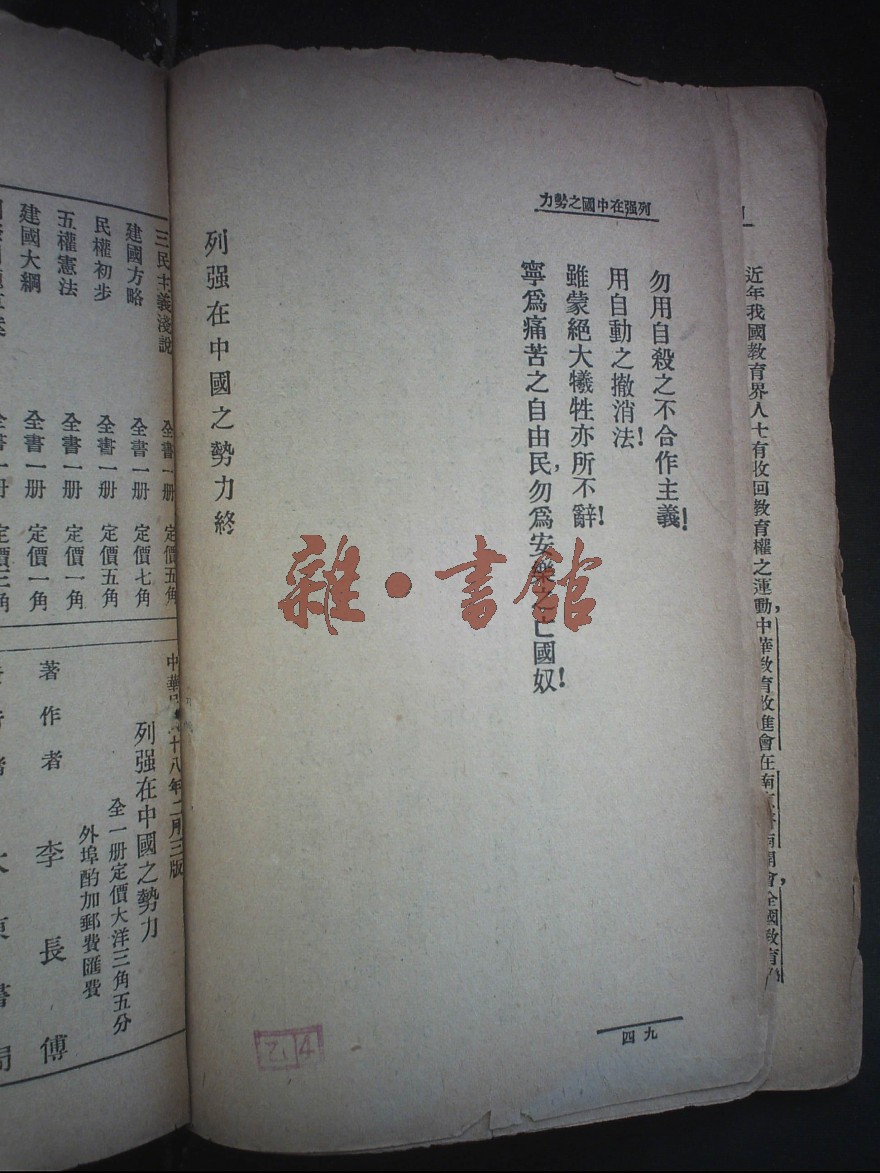 近年我國教育界人士有收回教育權之運動,中華教育改進會在南
開會,全國教育
列强在中國之勢力
勿用自殺之不合作主義!
用自動之撤消法!
雖蒙絕大犧牲亦所不辭!
寧爲痛苦之自由民,勿爲安樂之亡國奴!
列强在中國之勢力終
九四
雜•書館
三民主義淺說 全書一册 定價五角
建國方略 全書一册 定價七角
民權初步 全書一册 定價五角
五權憲法 全書一册 定價一角
建國大綱 全書一册 定價一角
全書一册 定價三角
中華 十八年二月三版
列强在中國之勢力
全一册定價大洋三角五分
外埠酌加郵費匯費
著作者 李長傅
大東書局